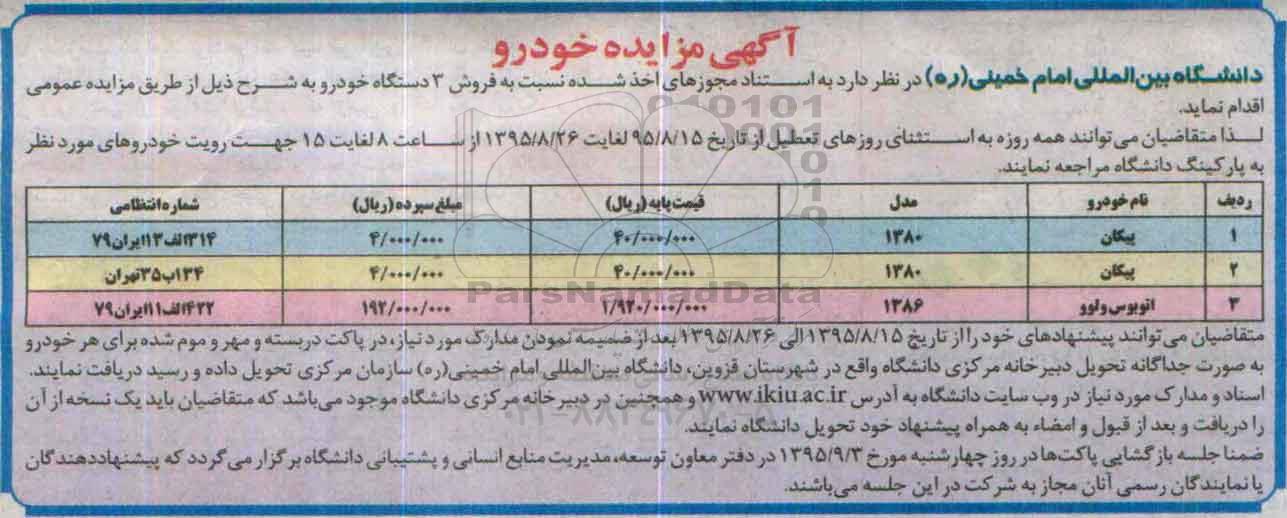 آگهی مزایده خودرو
دانشگاه بین‌المللی امام خمینی(ره) در نظر دارد به استناد مجوزهای اخذ شده نسبت به فروش ۳ دستگاه خودرو به شرح ذیل از طریق مزایده عمومی
اقدام نماید.
لذا متقاضیان می‌توانند همه روزه به استثنای روزهای تعطیل از تاریخ ۹۵/۸/۱۵ لغایت ۱۳۹۵/۸/۲۶ از ساعت ۸ لغایت ۱۵ جهت رویت خودروهای مورد نظر
به پارکینگ دانشگاه مراجعه نمایند.
ردیف نام خودرو مدل قیمت پایه (ریال) مبلغ سپرده (ریال) شماره انتظامی
۱ پیکان ۱۳۸۰ ۴۰/۰۰۰/۰۰۰ ۴/۰۰۰/۰۰۰ ۳۱۴الف۱۳ایران۷۹
۲ پیکان ۱۳۸۰ ۴۰/۰۰۰/۰۰۰ ۴/۰۰۰/۰۰۰ ۱۳۴ب۳۵تهران
۳ اتوبوس ولوو ۱۳۸۶ ۱/۹۲۰/۰۰۰/۰۰۰ ۱۹۲/۰۰۰/۰۰۰ ۴۲۲الف۱۱ایران۷۹
متقاضیان می‌توانند پیشنهادهای خود را از تاریخ ۱۳۹۵/۸/۱۵ الی ۱۳۹۵/۸/۲۶ بعد از ضمیمه نمودن مدارک مورد نیاز، در پاکت دربسته و مهر و موم شده برای هر خودرو
به صورت جداگانه تحویل دبیرخانه مرکزی دانشگاه واقع در شهرستان قزوین، دانشگاه بین‌المللی امام خمینی(ره) سازمان مرکزی تحویل داده و رسید دریافت نمایند.
اسناد و مدارک مورد نیاز در وب سایت دانشگاه به آدرس www.ikiu.ac.ir و همچنین در دبیرخانه مرکزی دانشگاه موجود می‌باشد که متقاضیان باید یک نسخه از آن
را دریافت و بعد از قبول و امضاء به همراه پیشنهاد خود تحویل دانشگاه نمایند.
ضمنا جلسه بازگشایی پاکت‌ها در روز چهارشنبه مورخ ۱۳۹۵/۹/۳ در دفتر معاون توسعه، مدیریت منابع انسانی و پشتیبانی دانشگاه برگزار می‌گردد که پیشنهاددهندگان
یا نمایندگان رسمی آنان مجاز به شرکت در این جلسه می‌باشند.
ParsNamadData